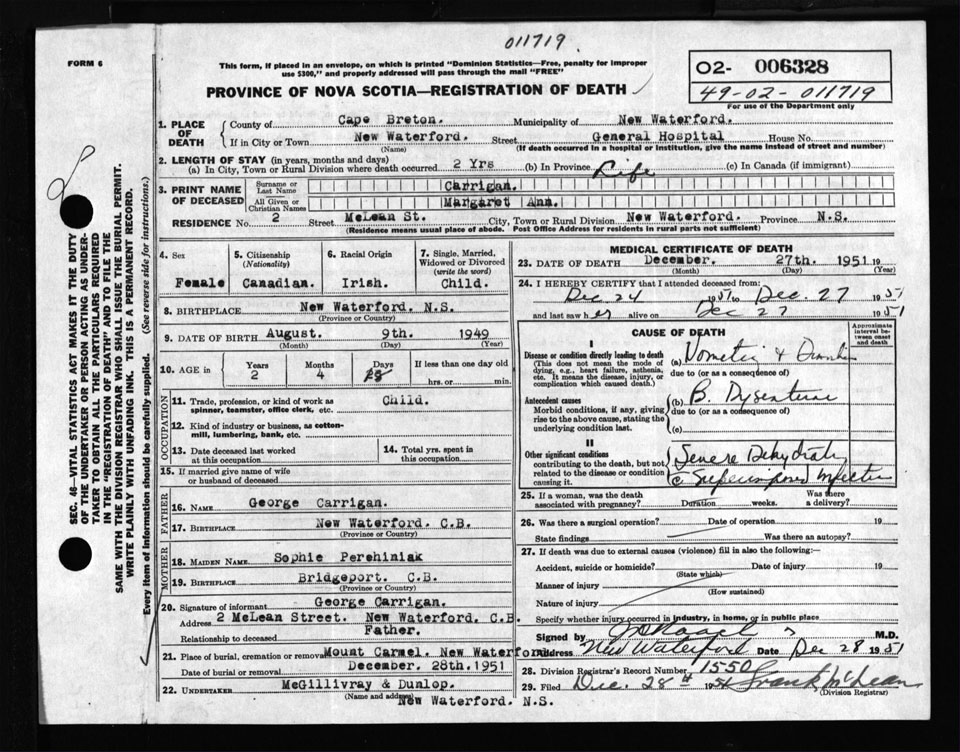 011719
FORM 6
This form, if placed in an envelope, on which is printed "Dominion Statistics—Free, penalty for improper
use $300," and properly addressed will pass through the mail "FREE"
PROVINCE OF NOVA SCOTIA—REGISTRATION OF DEATH
02- 006328
49-02-011719
For use of the Department only
SEC. 48—VITAL STATISTICS ACT MAKES IT THE DUTY
OF THE UNDERTAKER OR PERSON ACTING AS UNDER-
TAKER TO OBTAIN ALL THE PARTICULARS REQUIRED
IN THE "REGISTRATION OF DEATH" AND TO FILE THE
SAME WITH THE DIVISION REGISTRAR WHO SHALL ISSUE THE BURIAL PERMIT.
WRITE PLAINLY WITH UNFADING INK. THIS IS A PERMANENT RECORD.
Every item of Information should be carefully supplied. (See reverse side for instructions.)
1. PLACE OF DEATH
County of Cape Breton. Municipality of New Waterford.
If in City or Town New Waterford. Street General Hospital House No.
(Name) (If death occurred in a hospital or institution, give the name instead of street and number)
2. LENGTH OF STAY (in years, months and days)
(a) In City, Town or Rural Division where death occurred 2 Yrs (b) In Province Life (c) In Canada (if immigrant)
3. PRINT NAME OF DECEASED
Surname or Last Name Carrigan.
All Given or Christian Names Margaret Ann.
RESIDENCE No. 2 Street McLean St. City, Town or Rural Division New Waterford. Province N.S.
(Residence means usual place of abode. Post Office Address for residents in rural parts not sufficient)
4. Sex
Female
5. Citizenship (Nationality)
Canadian.
6. Racial Origin
Irish.
7. Single, Married, Widowed or Divorced (write the word)
Child.
8. BIRTHPLACE New Waterford N.S.
(Province or Country)
9. DATE OF BIRTH August. 9th. 1949
(Month) (Day) (Year)
10. AGE in Years Months Days If less than one day
2 4 hrs. or min.
OCCUPATION
11. Trade, profession, or kind of work as Child.
spinner, teamster, office clerk, etc.
12. Kind of industry or business, as cotton-
mill, lumbering, bank, etc.
13. Date deceased last worked at this occupation
14. Total yrs. spent in this occupation
15. If married give name of wife
or husband of deceased
FATHER
16. NAME George Carrigan.
17. BIRTHPLACE New Waterford. C.B.
(Province or Country)
MOTHER
18. MAIDEN NAME Sophie Perehiniak
19. BIRTHPLACE Bridgeport. C.B.
(Province or Country)
20. Signature of informant George Carrigan.
Address 2 McLean Street. New Waterford. C.B.
Relationship to deceased Father.
21. Place of burial, cremation or removal Mount Carmel. New Waterford
Date of burial or removal December. 28th.1951
22. UNDERTAKER McGillivray & Dunlop.
(Name and address)
New Waterford. N.S.
MEDICAL CERTIFICATE OF DEATH
23. DATE OF DEATH December. 27th. 1951 19
(Month) (Day) (Year)
24. I HEREBY CERTIFY that I attended deceased from:
Dec. 24 1951 to Dec. 27 1951
and last saw her alive on Dec 27 1951
CAUSE OF DEATH
Approximate interval between onset and death
I
Disease or condition directly leading to death
(This does not mean the mode of dying, e.g., heart failure, asthenia, etc. It means the disease, injury, or complication which caused death.)
(a)
due to (or as a consequence of)
Antecedent causes
Morbid conditions, if any, giving rise to the above cause, stating the underlying condition last.
(b) B.
due to (or as a consequence of)
(c)
II
Other significant conditions
contributing to the death, but not related to the disease or condition causing it.
Severe
c Superimposed
25. If a woman, was the death associated with pregnancy? Duration weeks. Was there a delivery?
26. Was there a surgical operation? Date of operation 19
State findings Was there an autopsy?
27. If death was due to external causes (violence) fill in also the following:—
Accident, suicide or homicide? Date of injury 19
(State which)
Manner of injury
(How sustained)
Nature of injury
Specify whether injury occurred in industry, in home, or in public place
Signed by M.D.
Address New Waterford Date Dec 28 1951
28. Division Registrar's Record Number 1550
29. Filed Dec. 28th 1951 Frank McLean
(Division Registrar)